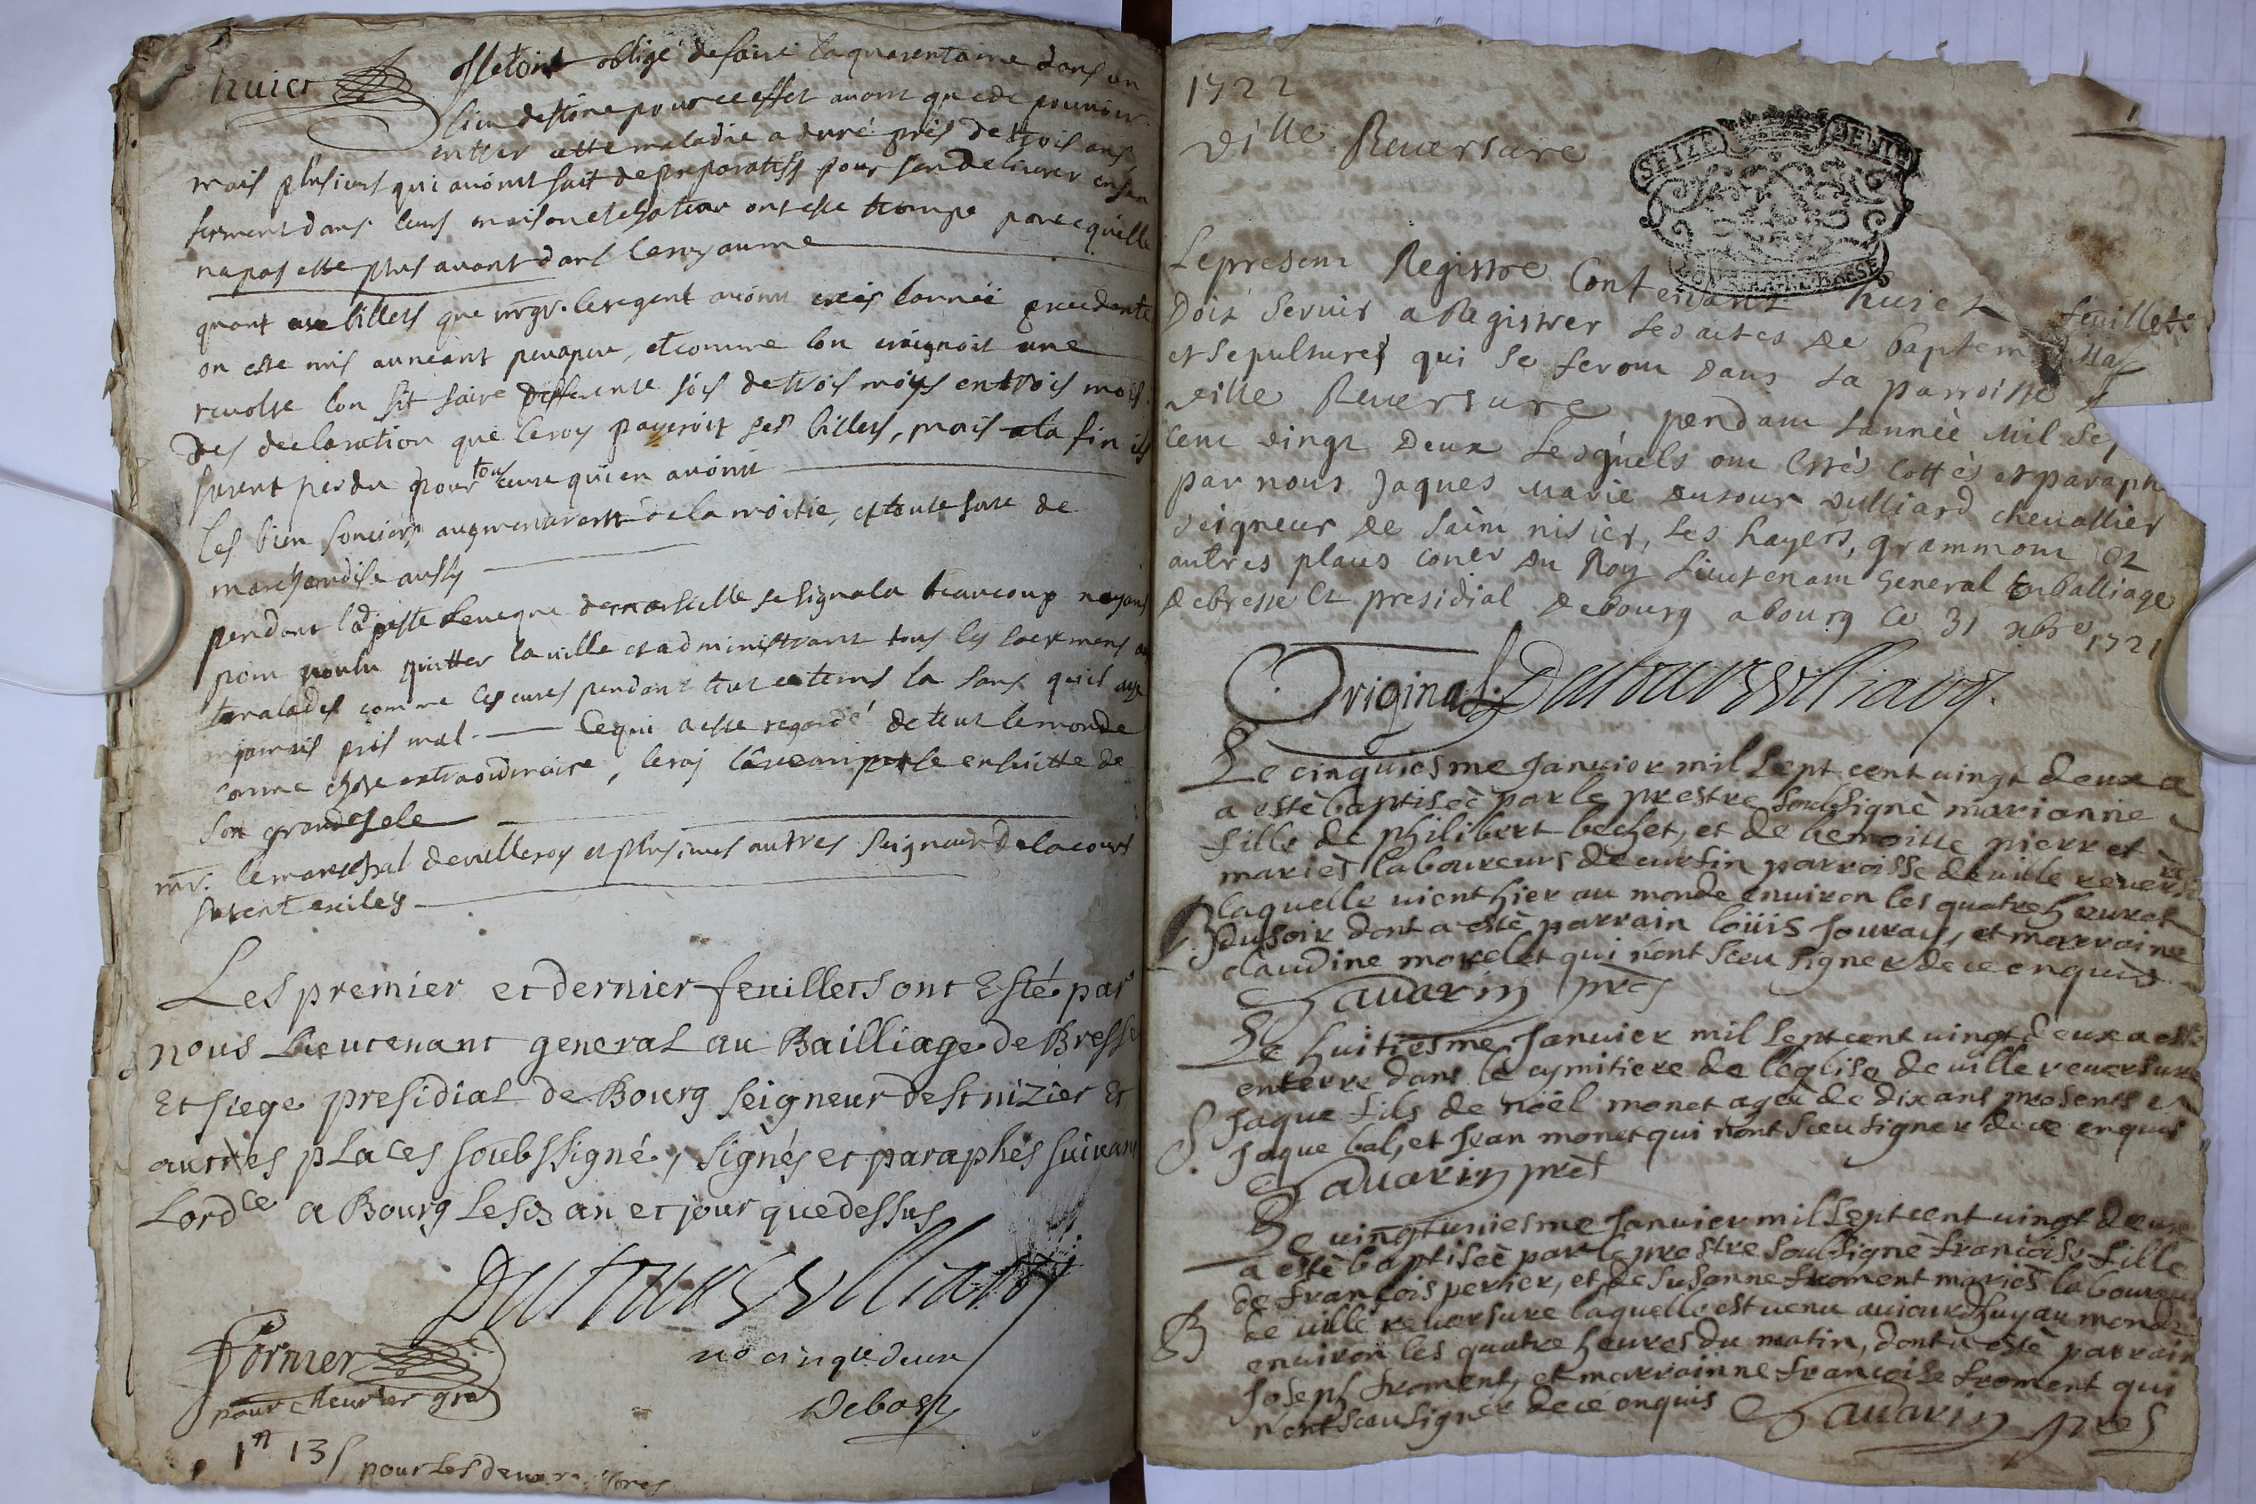 huict
estoit obligé de faire la quarentaine dans un
lieu destiné pour ce effet avant que de pouvoir
entrer cette maladie a duré près de trois ans
mais plusieurs qui avoint fait de preparatifs pour sen delivrer en sen
ferment dans leurs maison et chateau ont esté trompe parce qu'elle
na pas esté plus avant dans le royaume
quant aux billets que mgr. le regent avoint créés lannée precedente
on esté mis au neant peu a peu, et comme lon craignoit une
revolte lon fit faire differente fois de trois moys en trois mois
des declaration que le roy payeroit ses billets, mais a la fin ils
furent perdu pour tous ceux qui en avoint
les bien fonciers augmenterent de la moitie, et toute sorte de
marchandise aussy
pendant la peste leveque de marseille se signala beaucoup nayant
poin voulu quitter la ville et administrant tous les sacremens aux
malades comme les cures pendant tout ce tems la sans quil aye
jamais pris mal. Ce qui a esté regardé de tout le monde
comme chose extraordinaire, le roy la ensuitte de
son grand zele
mr. le marechal de villeroy et plusieurs autres Seigneurs de la cour
furent exiles
Les premier et dernier feuillets ont Esté par
nous Lieutenant general au Bailliage de Bresse
Et siege presidial de Bourg seigneur de st nizier Et
autres places soubssigné, signés et paraphés suivant
Lordce a Bourg les an et jour que dessus
Dutour Vulliard
Fornier
pour Meurier gre
no cinq deux
Debost
1n 13 s pour les deux
1722
Ville Reversure
1
SEIZE DENIE
Le present Registre Contenant huict feuillets
Doit servir a Registrer les actes de baptem Ma
et sepultures qui se feront dans la parroisse
ville Reversure pendant Lannèe Mil Sep
cent vingt Deux Lesquels ont Estés Cottés et paraph
par nous Jaques Marie Dutour Vulliard chevallier
seigneur de saint nisier, Les hayes, grammont et
autres places coner du Roy Lieutenant General En balliage
de bresse et presidial de bourg a bourg ce 31 xbre 1721
Original Dutour Vulliard.
Le cinquiesme Janvier mil sept cent vingt deux a
a estè baptiseè par le prestre soubsignè marianne
fille de philibert bechet, et de benoitte pierret
mariès laboureurs de curtin parroisse de ville reversure
laquelle vient hier au monde environ les quatre heures
B du soir dont a estè parrain loüis Jouray, et marraine
claudine morelet qui n'ont sceu signer de ce enquis
Savarin pres
Le huitiesme Janvier mil sept cent vingt deux a esté
enterre dans le cymitiere de leglise de ville reversure
S Jaque fils de noël monet ageè de dix ans presents
Jaque bal, et Jean monet qui n'ont sceu signer de ce enquis
Savarin pres
Le vingtuniesme Janvier mil sept cent vingt deux
a estè baptiseè par le prestre soubsignè françoise fille
de françois perier, et de susanne froment mariès laboureurs
B de ville reversure laquelle est venu aujourdhuy au monde
environ les quatre heures du matin, dont a estè parrain
Joseph froment, et marrainne françoise froment qui
n'ont sceu signer de ce enquis Savarin pres